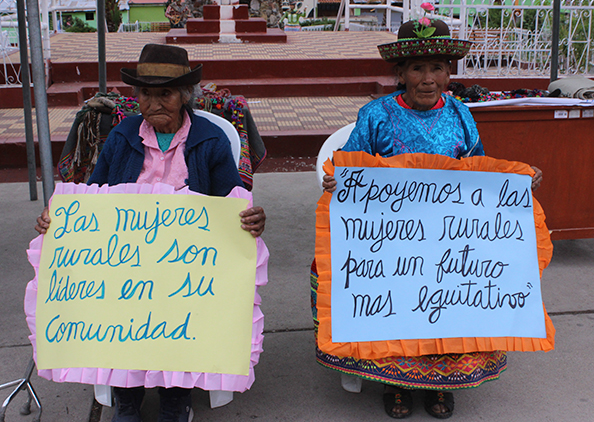 Las mujeres
rurales son
líderes en su
comunidad.
"Apoyemos a las
mujeres rurales
para un futuro
mas equitativo"